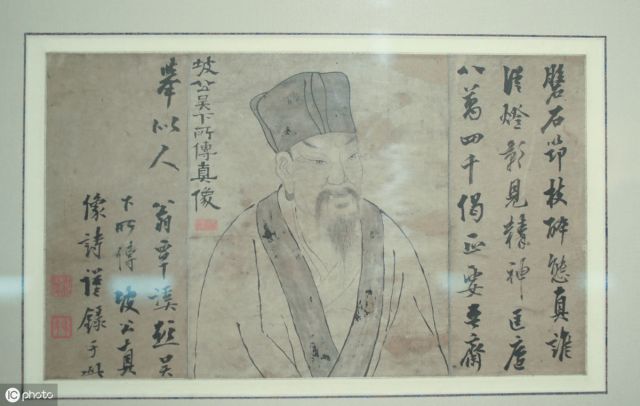 磐石筇枝醉態真誰
從燈影見精神匡廬
八萬四千偈正要吾齋
坡公吳下所傳真像
舉似人
翁覃溪題吴
下所傳坡公真
像詩謹錄于此
IC photo